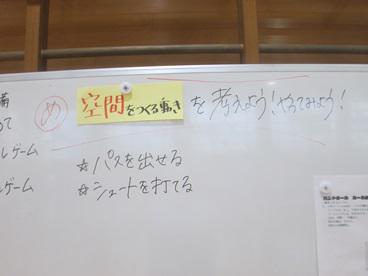 め 空間をつくる動きを考えよう!やってみよう!
☆パスを出せる
☆シュートを打てる
ゲーム
ゲーム